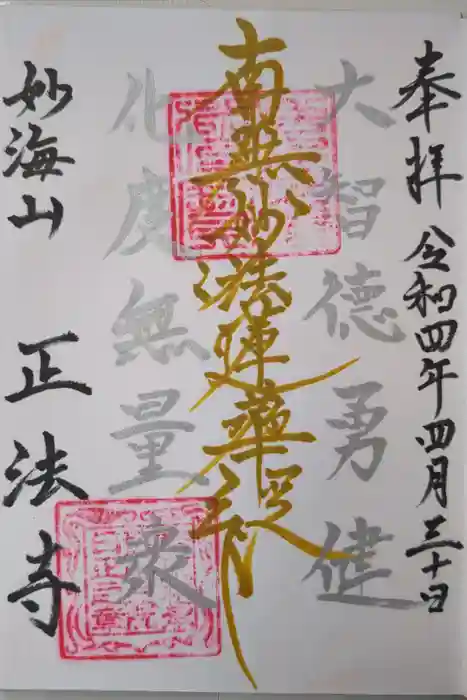 奉拝 令和四年四月三十日
大智德勇健
南無妙法蓮華経
化度無量衆
妙海山 正法寺